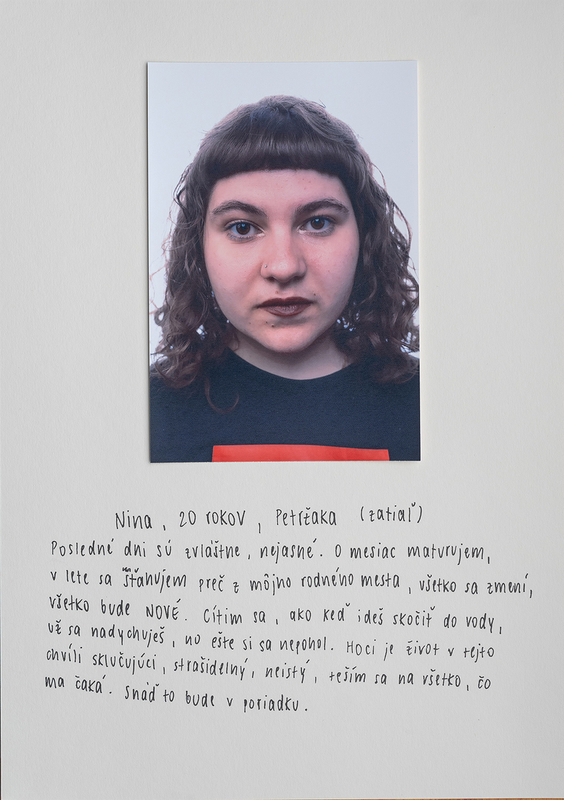 Nina, 20 rokov, Petržaka (zatiaľ)
Posledné dni sú zvláštne, nejasné. O mesiac maturujem,
v lete sa sťahujem preč z môjho rodného mesta, všetko sa zmení,
všetko bude NOVÉ. Cítim sa, ako keď ideš skočiť do vody,
už sa nadychuješ, no ešte si sa nepohol. Hoci je život v tejto
chvíli skľučujúci, strašidelný, neistý, teším sa na všetko, čo
ma čaká. Snáď to bude v poriadku.